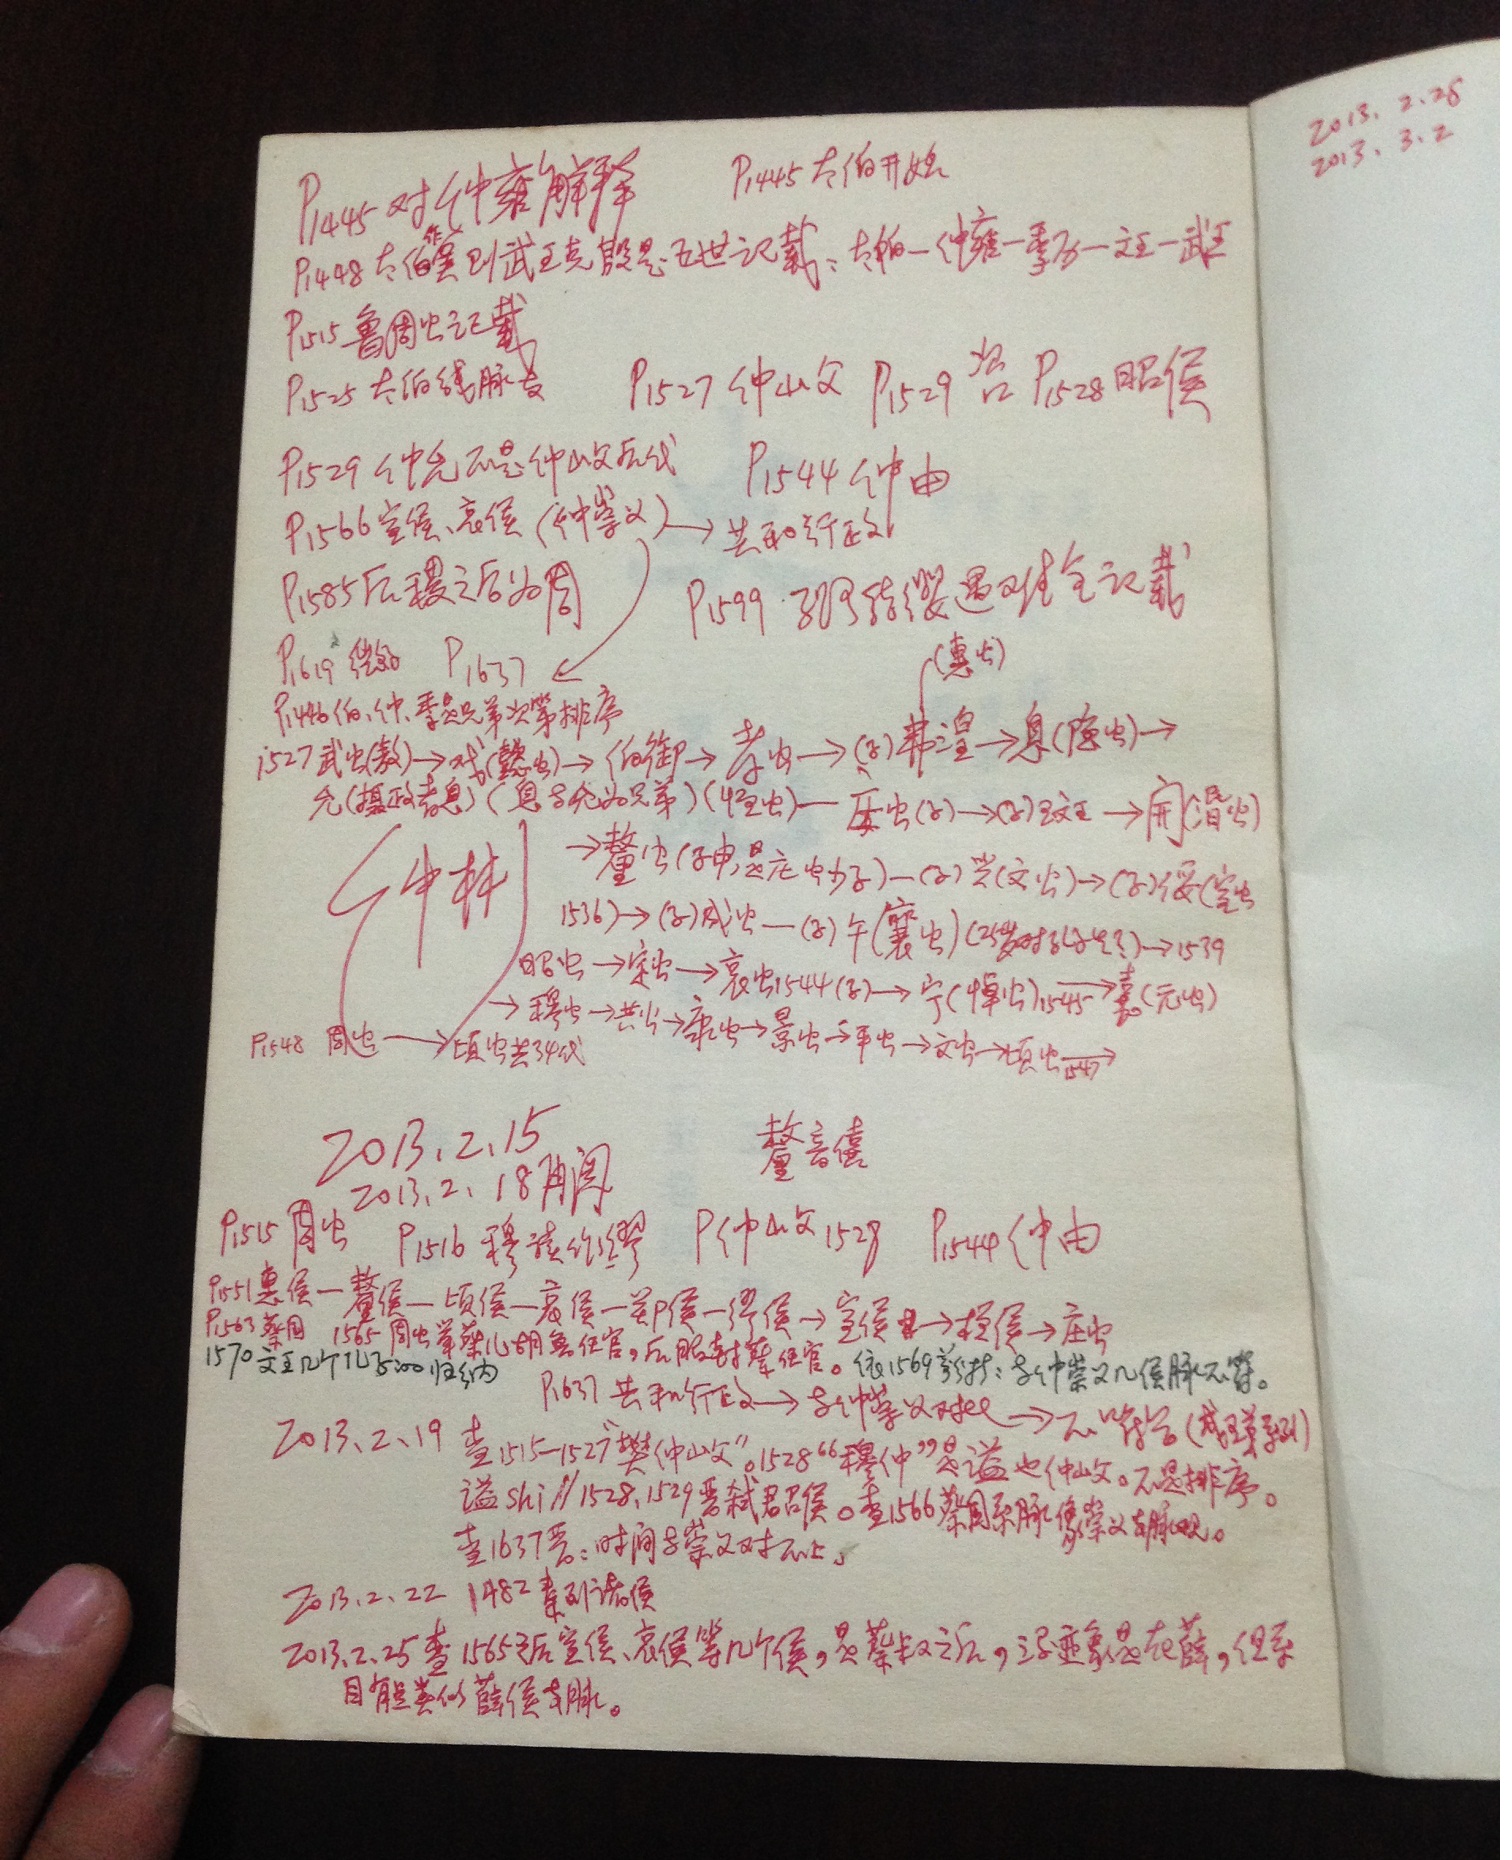 P1445对仲雍解释 P1445太伯开始
P1448太伯作吴到武王克殷是五世记载：太伯一仲雍一季历一文王一武王
P1515鲁周公记载
P1525太伯线脉支 P1527仲山父 P1529 P1528昭侯
P1529 仲允不是仲山父后代 P1544仲由
P1566宣侯、哀侯（仲崇义）→共和行政
P1585后稷之后为周 P1599.子路结缨遇难记载
P1619微 P1637
（惠公）
P1446伯、仲、季是兄弟次第排序
1527武公（敖）→戏（懿公）→伯御→孝公→（子）弗湟→息（隐公）→
允（摄政者息）（息与允为兄弟）（桓公）—庄公（子）→（子） →开（湣公）
→釐公（子申，是庄公少子）—（子）兴（文公）→（子）俀（宣公
1536）→（子）成公—（子）午（襄公）（25岁时孔子生）→1539
昭公→定公→哀公1544（子）→宁（悼公）1545→嘉（元公）
→穆公→共公→康公→景公→平公→文公→顷公1547→
仲林
P1548 周公→顷公共34代
2013.2.15 釐音僖
2013.2.18再阅
P1515周公 P1516穆读作缪 P仲山父1528 P1544仲由
P1551惠侯—釐侯—顷侯—哀侯— 侯—缪侯→宣侯→桓侯→庄公
P1563蔡国 1565周公举蔡儿胡鲁任官，后服封蔡任官。依1569 ：与仲崇义几侯脉不符。
1570文王几个儿子 归纳
P1637共和行政→与仲崇义对比→不符合（ ）
2013.2.19 查1515—1527“樊仲山父”。1528“穆仲”是谥也仲山父。不是排序。
谥shi//1528、1529晋弑君昭侯。查1566蔡国系脉像崇义支脉
查1637晋：时间与崇义对不上。
2013.2.22 1482 列诸侯
2013.2.25查1565之后宣侯、哀侯等几个侯，是蔡叔之后， 是在薛，但
目前类似薛侯支脉。
2013.2.28
2013.3.2